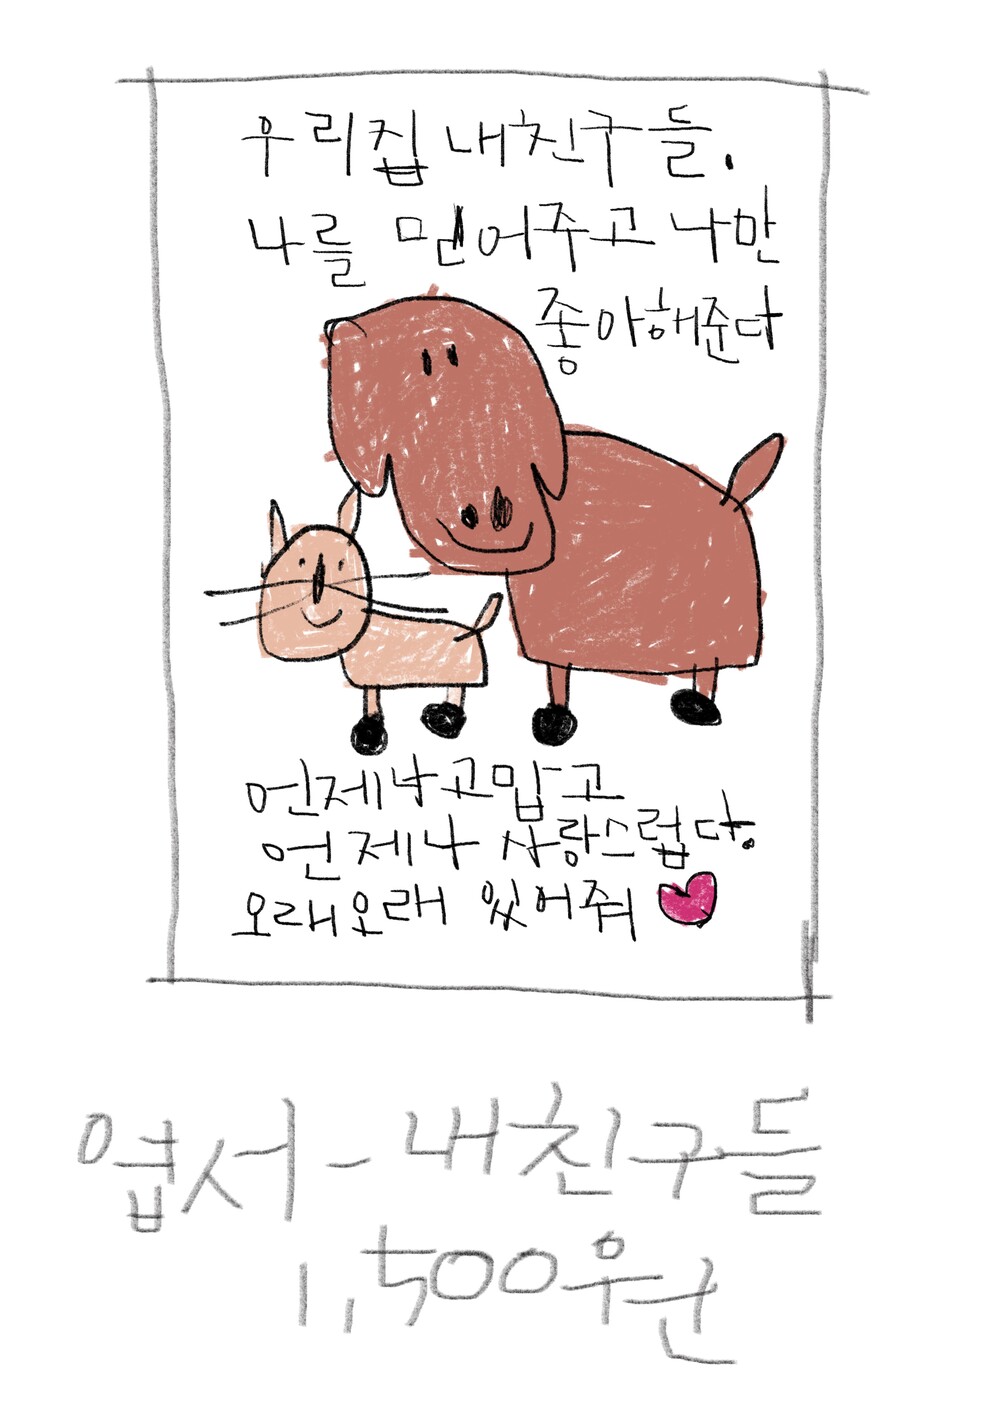 우리집 내친구들.
나를 믿어주고 나만
좋아해준다
언제나 고맙고
언제나 사랑스럽다.
오래오래 있어줘
엽서 - 내친구들
1,500우눈